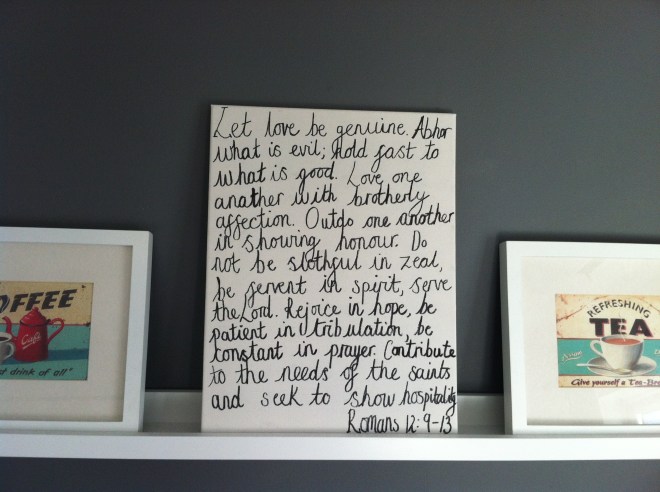 Let love be genuine. Abhor
what is evil; hold fast to
what is good. Love one
another with brotherly
affection. Outdo one another
in showing honour. Do
not be slothful in zeal,
be fervent in spirit, serve
the Lord. Rejoice in hope, be
patient in tribulation, be
constant in prayer. Contribute
to the needs of the saints
and seek to show hospitality
Romans 12:9-13
OFFEE
Café
t drink of all"
REFRESHING
TEA
Give yourself a Tea-Bre